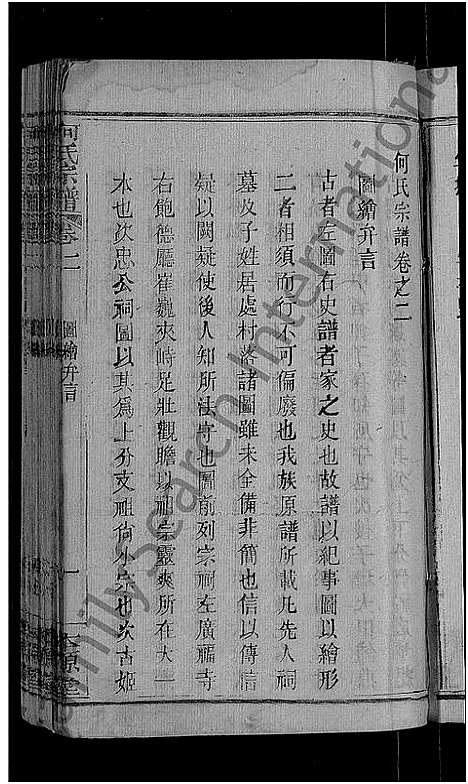 何氏宗譜卷之二
圖繪弁言
古者左圖右史譜者家之史也故譜以紀事圖以繪形
二者相須而行不可偏廢也我族原譜所載凡先人祠
墓及子姓居處村落諸圖雖未全備非簡也信以傳信
疑以闕疑使後人知所法守也圖前列宗祠左廣福寺
右飽德廳崔巍夾峙足壯觀瞻以祖宗靈爽所在大一
本也次忠公祠圖以其為上分支祖倘小宗也次古姬
何氏宗譜
卷二
圖繪弁言
一
本源堂
Familysearch International